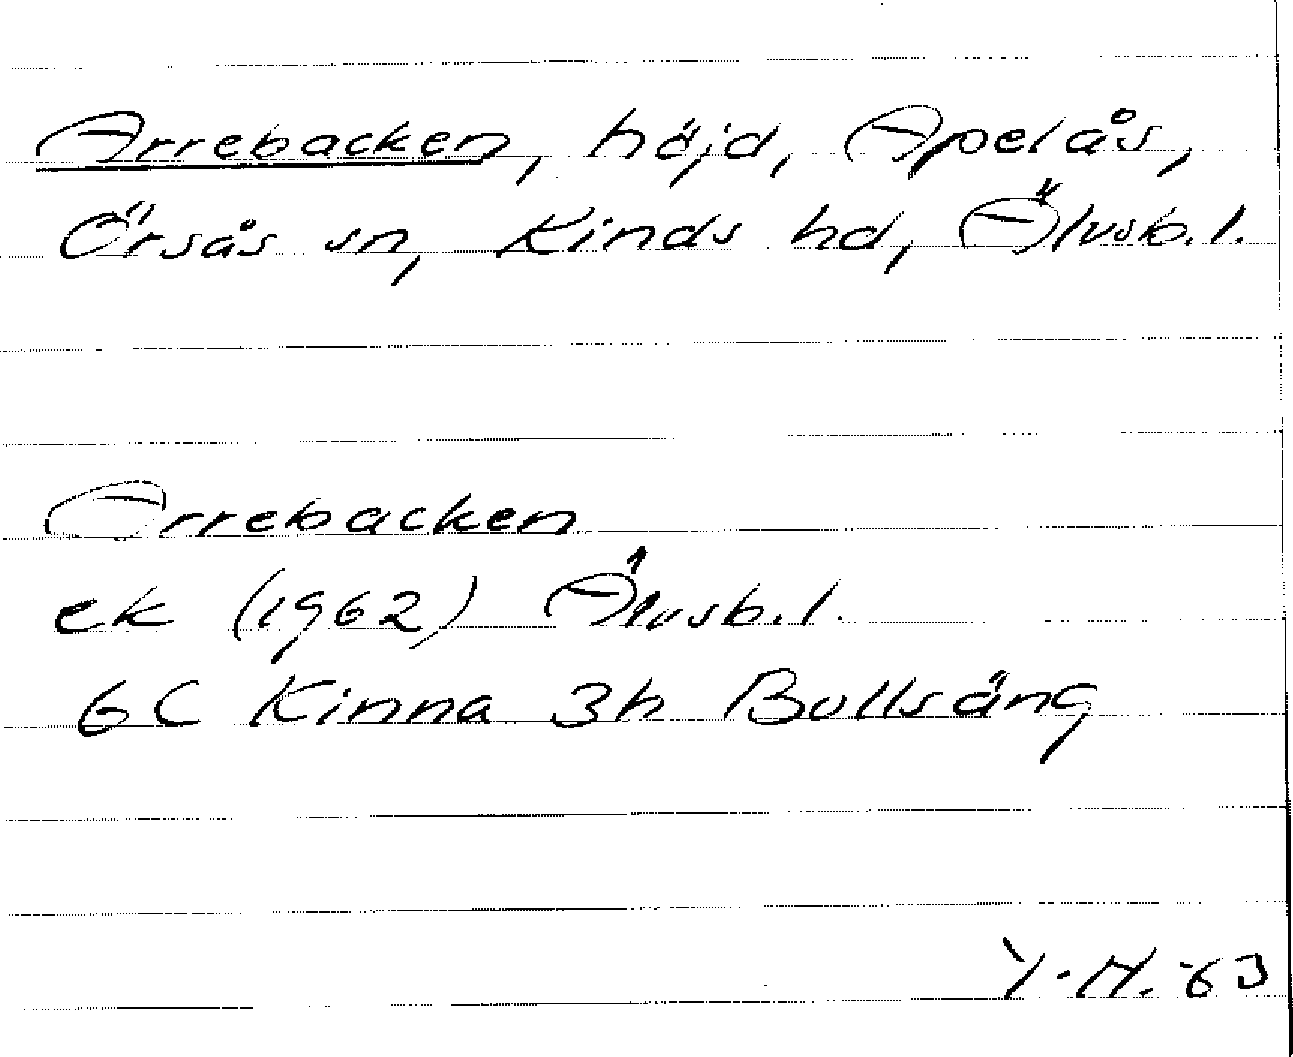 Arrebacken, höjd, Apelås,
Örsås sn, Kinds hd, Älvsb. l.
Arrebacken
ek (1962) Älvsb. l.
6C Kinna 3h Bullsäng
Y.H. 63